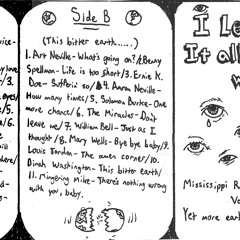 Side B
(This bitter earth......)
1. Art Neville- What's going on?/2. Benny
Spellman- Life is too short/3. Ernie K.
Doe- Sufferin' so/4. Aaron Neville-
How many times/5. Solomon Burke- One
more chance/6. The Miracles- Don't
leave me/7. William Bell- Just as I
thought/8. Mary Wells- Bye bye baby/9.
Louis Jordan- The amen corner/10.
Dinah Washington- This bitter earth/
11. Mingering Mike- There's nothing wrong
with you, baby.
I L
It all
Mississippi R
Vo
Yet more ear